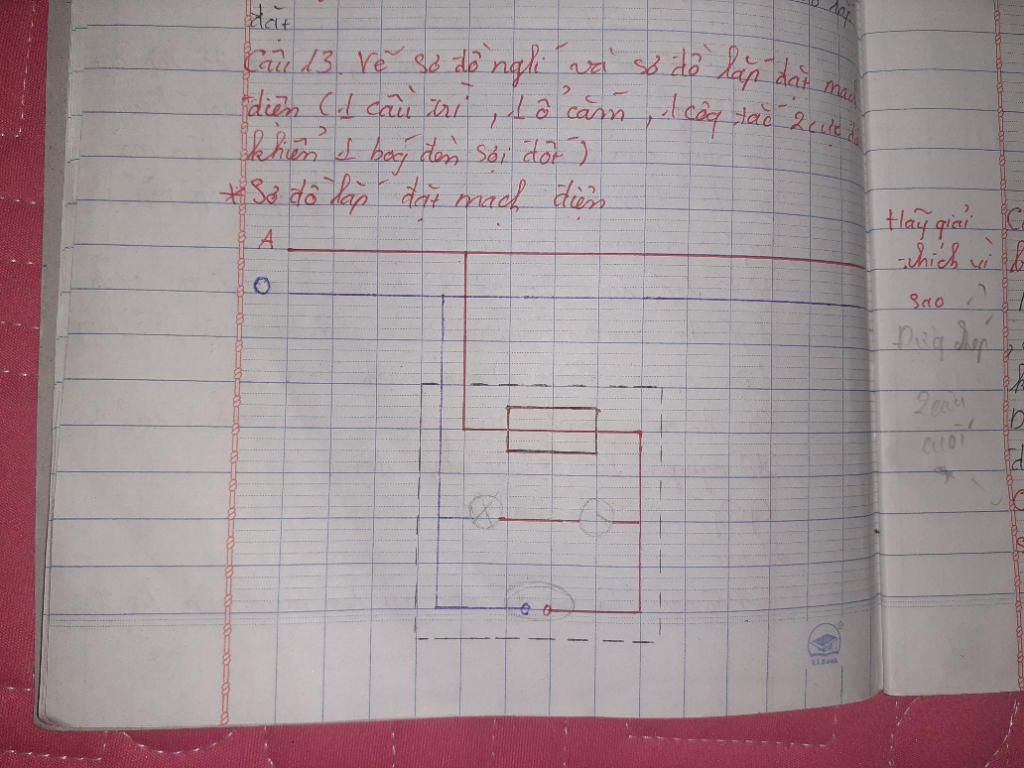 đặt
Câu 13. Vẽ sơ đồ nglí và sơ đồ lắp đặt mạch
điện (1 cầu trì, 1 ổ cắm, 1 côg tắc 2 cực
khiển 1 bóg đèn sợi đốt)
* Sơ đồ lắp đặt mạch điện
A
O
Hãy giải
thích vì
sao ?
2 câu
cuối
*